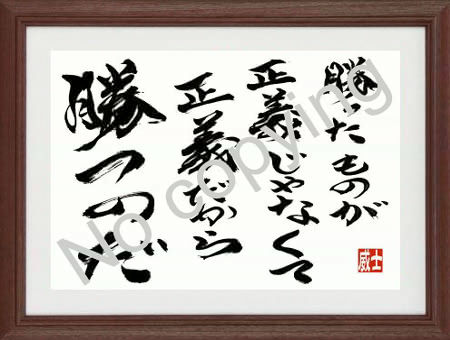 勝ったものが
正義じゃなくて
正義だから
勝つのだ
威士
No copying